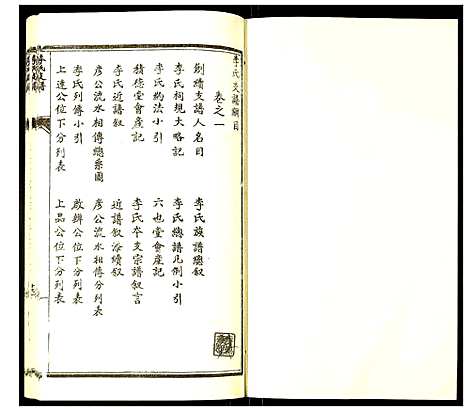 李氏支譜綱目
卷之一
創續支譜人名目　李氏族譜總叙
李氏祠規大略記　李氏總譜凡例小引
李氏納法小引　六也堂會産記
積德堂會産記　李氏夲支宗譜叙言
李氏近譜叙　近譜叙添續叙
彦公流水相傳總系圖　彦公流水相傳分列表
李氏列傳小引　啟辦公位下分列表
上達公位下分列表　上品公位下分列表